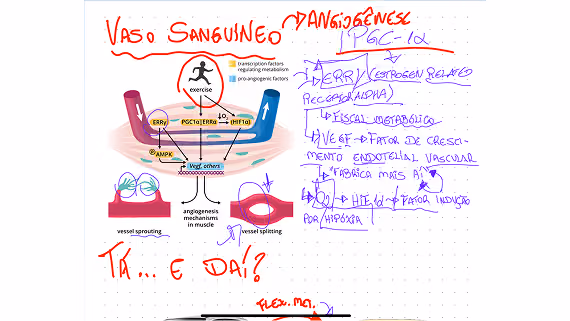 VASO SANGUÍNEO → ANGIOGÊNESE
PGC-1α
transcription factors
regulating metabolism
pro-angiogenic factors
exercise
ERRγ
PGC1α
ERRα
↓O₂
HIF1α
P
AMPK
Vegf, others
vessel sprouting
angiogenesis
mechanisms
in muscle
vessel splitting
ERR (ESTROGEN RELATED
RECEPTOR ALPHA)
FISCAL METABÓLICO
VEGF → FATOR DE CRESCI
MENTO ENDOTELIAL VASCULAR
"FABRICA MAIS AÍ"
O₂ → HIF1α → FATOR INDUÇÃO
POR HIPÓXIA
TÁ... E DAÍ?
FLEX. MET.